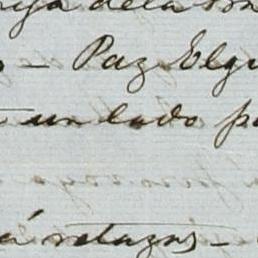 de la
– Paz Elgu
un lado pa
á retazos –